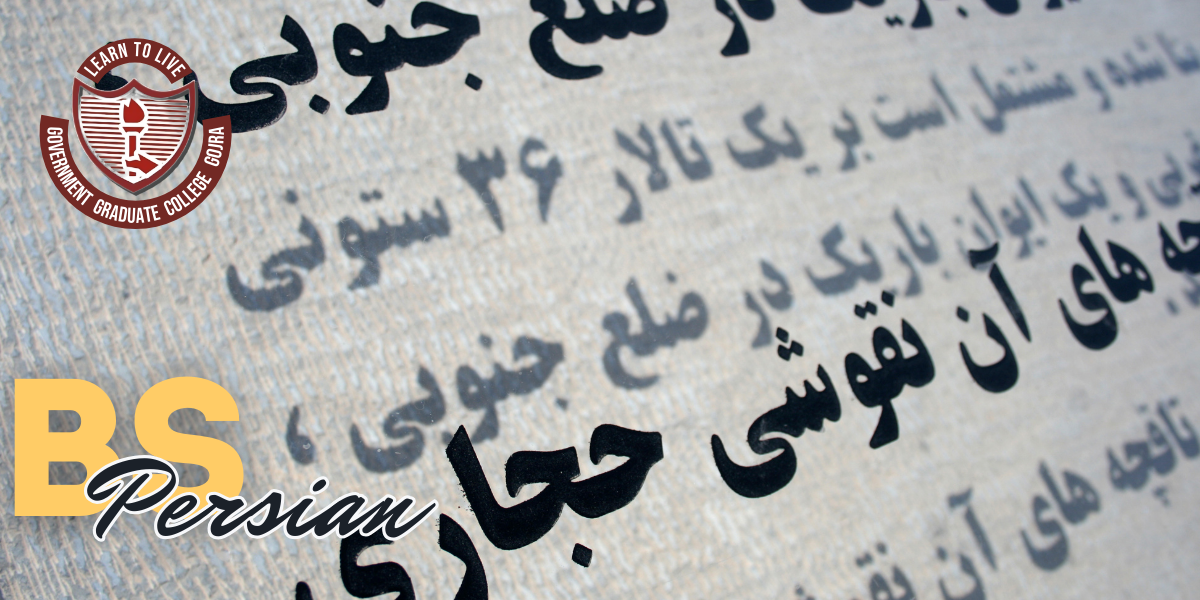 LEARN TO LIVE
GOVERNMENT GRADUATE COLLEGE GOJRA
در ضلع جنوبی
شده و مشتمل است بر یک تالار ۳۶ ستونی
و یک ایوان باریک در ضلع جنوبی ،
های آن نقوشی حجاری
های آن
BS
Persian